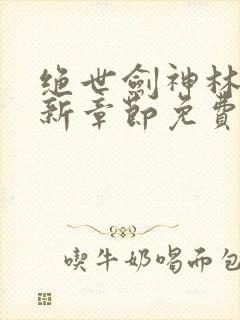 绝世劍神林
新章節免費
喫牛奶喝面包